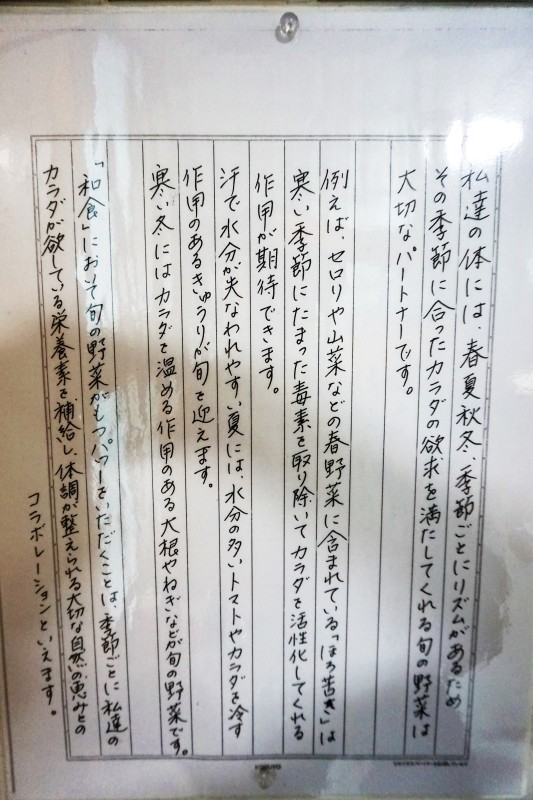 私達の体には、春夏秋冬、季節ごとにリズムがあるため
その季節に合ったカラダの欲求を満たしてくれる旬の野菜は
大切なパートナーです。
例えば、セロリや山菜などの春野菜に含まれている「ほろ苦さ」は
寒い季節にたまった毒素を取り除いてカラダを活性化してくれる
作用が期待できます。
汗で水分が失なわれやすい夏には、水分の多いトマトやカラダを冷す
作用のあるきゅうりが旬を迎えます。
寒い冬にはカラダを温める作用のある大根やねぎなどが旬の野菜です。
「和食」において旬の野菜がもつパワーをいただくことは、季節ごとに私達の
カラダが欲している栄養素を補給し、体調が整えられる大切な自然の恵みとの
コラボレーションといえます。
KOKUYO